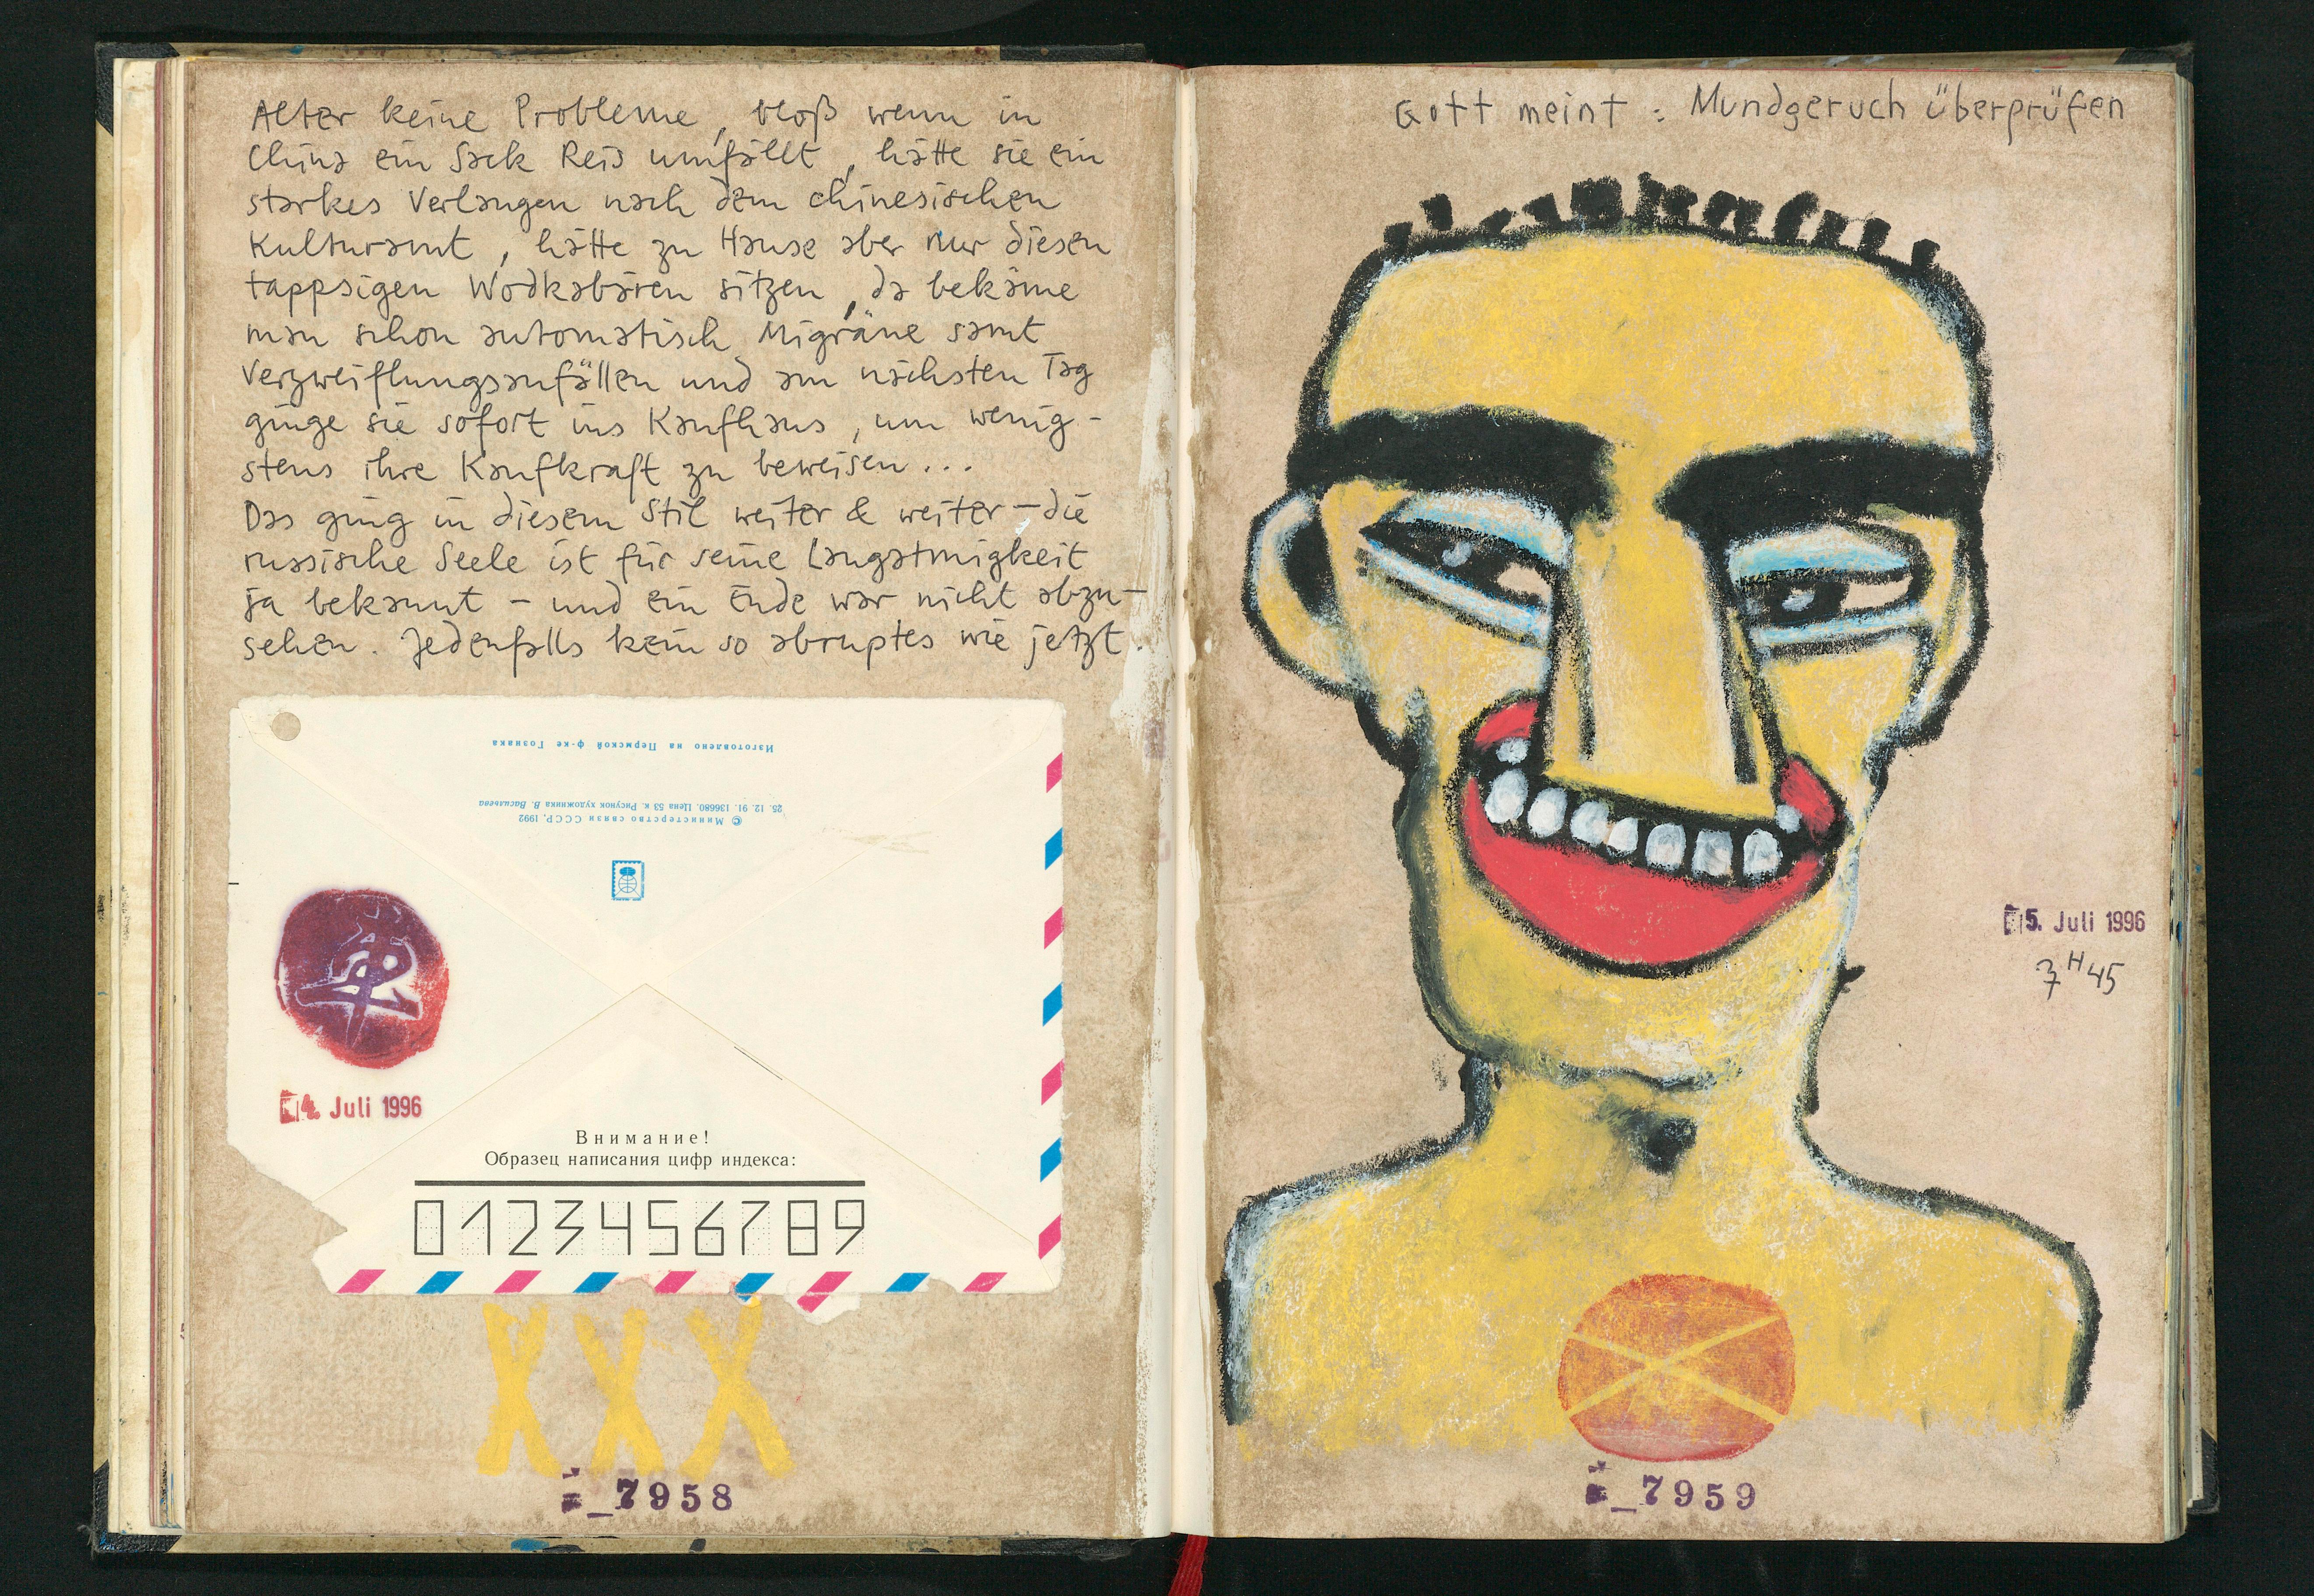 Alter keine Probleme, bloß wenn in
China ein Sack Reis umfällt, hätte sie ein
starkes Verlangen nach dem chinesischen
Kulturamt, hätte zu Hause aber nur diesen
tappsigen Wodkabären sitzen, da bekäme
man schon automatisch Migräne samt
Verzweiflungsanfällen und am nächsten Tag
ginge sie sofort ins Kaufhaus, um wenig-
stens ihre Kaufkraft zu beweisen...
Das ging in diesem Stil weiter & weiter – die
russische Seele ist für seine Langatmigkeit
ja bekannt – und ein Ende war nicht abzu-
sehen. Jedenfalls kein so abruptes wie jetzt.
Изготовлено на Пермской ф-ке Гознака
© Министерство связи СССР, 1992
25. 12. 91. 136680. Цена 53 к. Рисунок художника В. Васильева
4. Juli 1996
Внимание!
Образец написания цифр индекса:
0123456789
XXX
7958
Gott meint: Mundgeruch überprüfen
5. Juli 1996
7H45
7959